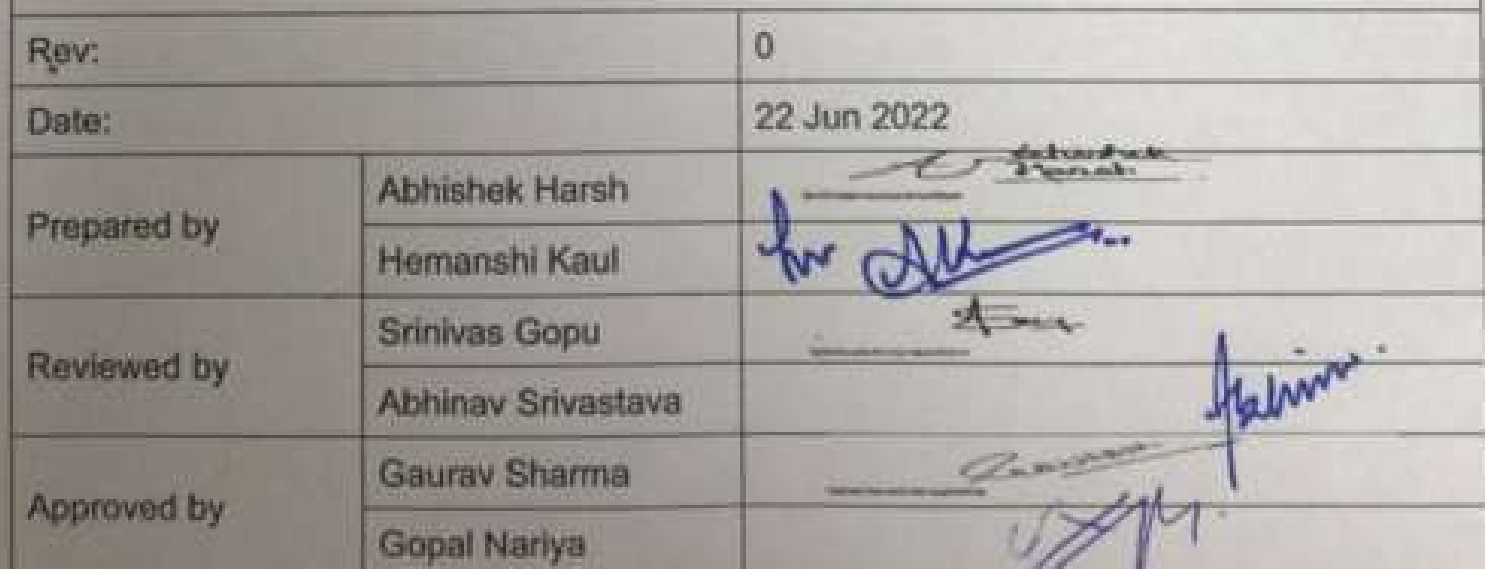 Rev: 0
Date: 22 Jun 2022
Prepared by
Abhishek Harsh
Hemanshi Kaul for
Reviewed by
Srinivas Gopu
Abhinav Srivastava
Approved by
Gaurav Sharma
Gopal Nariya